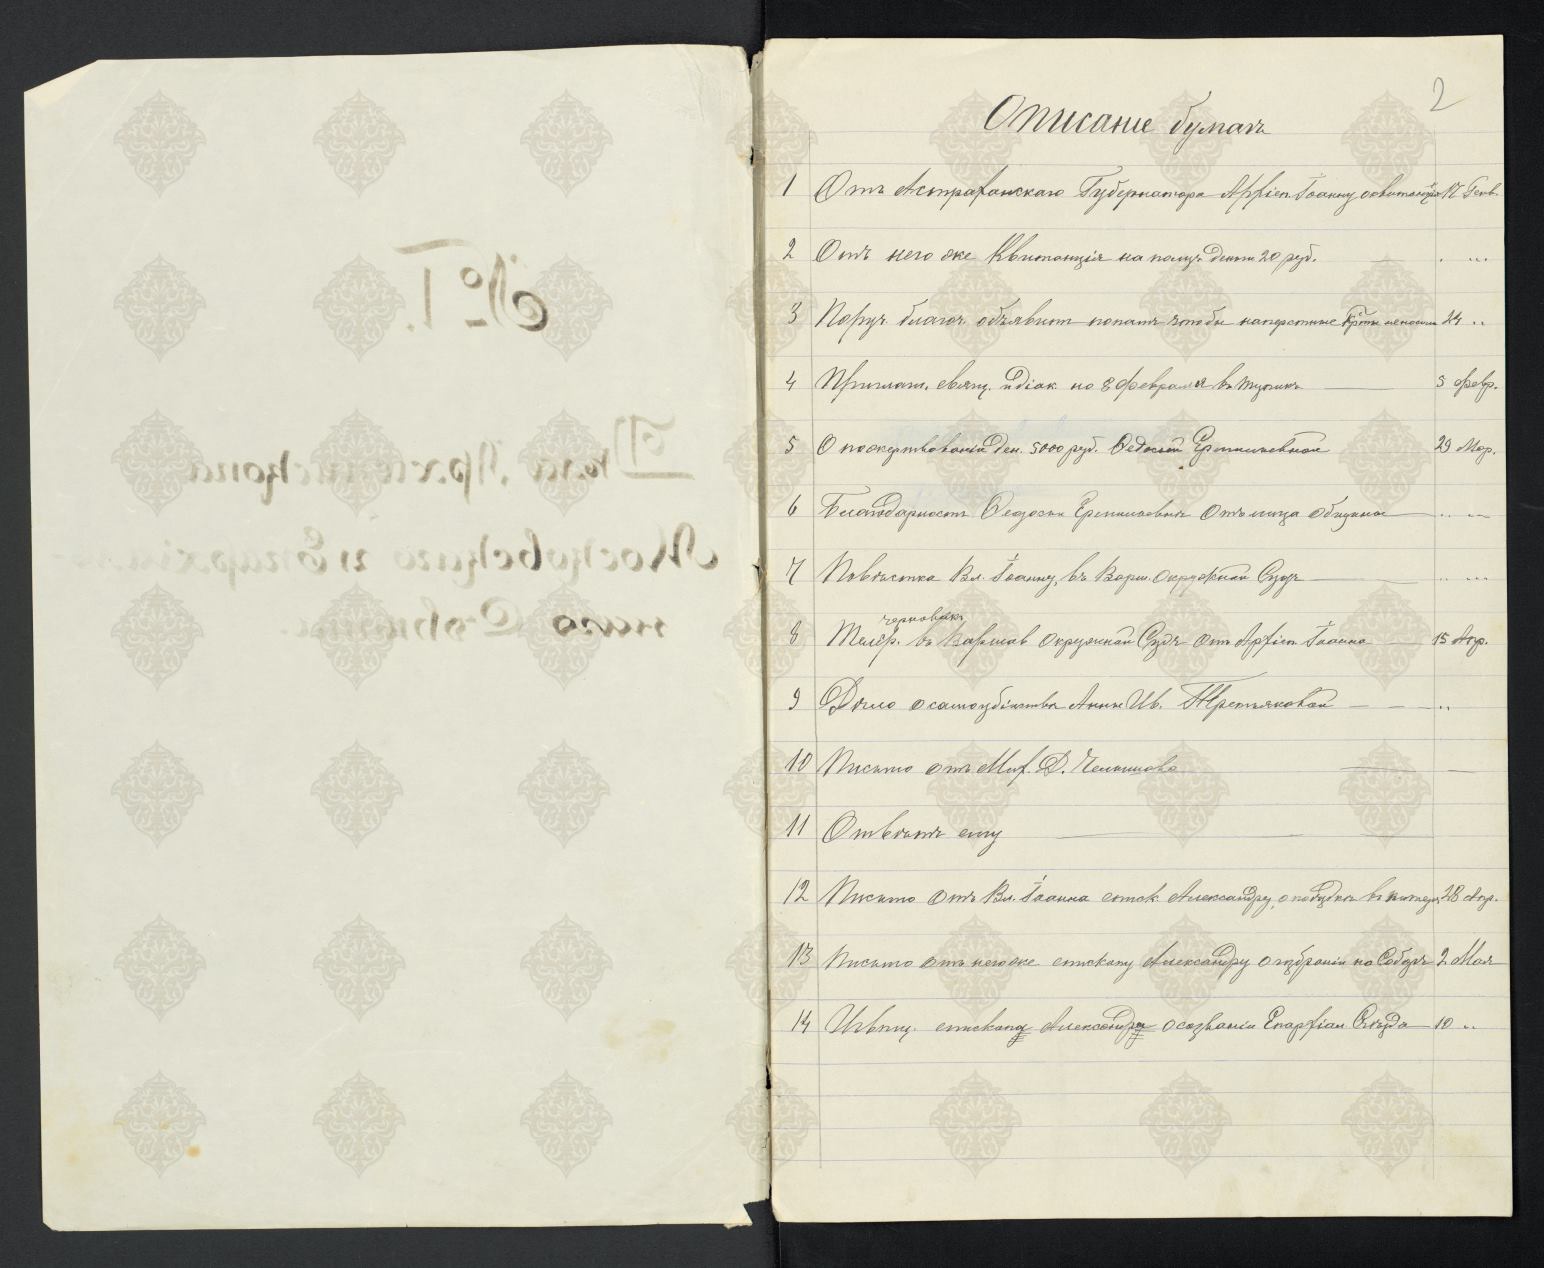 № 1.
Дела Архіепископа
Московскаго и Епархіаль-
наго Собранія.
2
Описаніе бумагъ
1 Отъ Астраханскаго Губернатора Архіеп. Іоанну 17 Генв.
2 Отъ него же Квитанція на получ. денги 20 руб. . ...
3 Поруч. благоч. объявит попамъ чтобы наперстные Крты неносили 24 ..
4 Приглаш. свящ. и діак на 8 февраля въ 3 февр.
5 О пожертвованіи Ден. 5000 руб. Федосьей Ермилаевной 29 Мар.
6 Благодарность Федосьи Ермилаевне Отъ лица общины .. ...
7 Повѣстка Вл. Іоанну, въ Варш. окружной Судъ .. ...
черновикъ
8 Телегр. въ Варшав Окружной Судъ Отъ Архіеп. Іоанна 15 Апр.
9 Дѣло о самоубійствѣ Анны Ив. Третьяковой ..
10 Письмо отъ Мих. Д. Челышова
11 Отвѣтъ ему
12 Письмо Отъ Вл. Іоанна епиck Александру, о поездке въ 28 Апр.
13 Письмо отъ него же епископу Александру О избраніи на Соборъ 2 Мая
14 Извѣщ. епископа Александра о созваніи Епархіал Съѣзда 10 ..